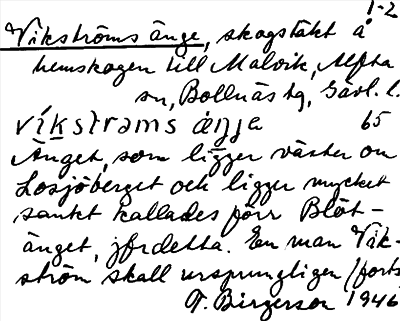 1-2
Vikströms änge, skogstäkt å
hemskogen till Malvik, Alfta
sn, Bollnäs tg, Gävl. l.
víkstrəms äŋja 65
Änget, som ligger väster om
Losjöberget och ligger mycket
sankt kallades förr Blöt-
änget, jfr detta. En man Vik-
ström skall ursprungligen (forts
G. Birgerson 1946